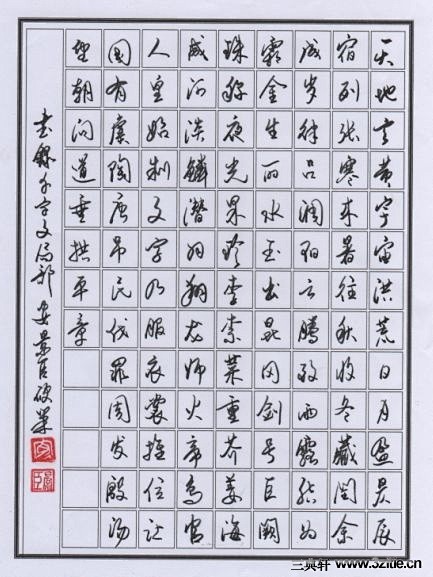 天地玄黄宇宙洪荒日月盈昃辰
宿列张寒来暑往秋收冬藏闰余
成岁律吕调阳云腾致雨露结为
霜金生丽水玉出昆冈剑号巨阙
珠称夜光果珍李柰菜重芥姜海
咸河淡鳞潜羽翔龙师火帝鸟官
人皇始制文字乃服衣裳推位让
国有虞陶唐吊民伐罪周发殷汤
坐朝问道垂拱平章
书录千字文局部 安景臣硬笔
www.3zitie.cn